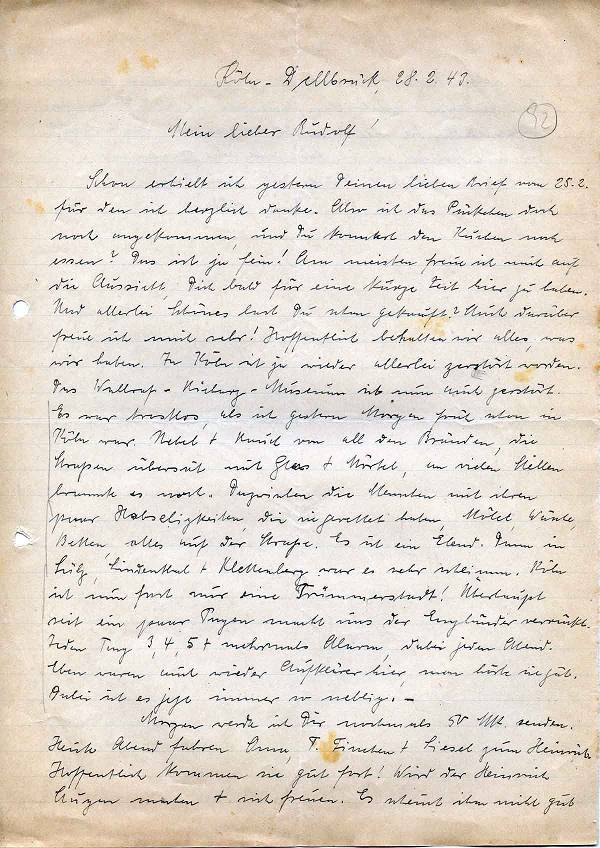 Köln-Dellbrück, 28.2.43.
92
Mein lieber Rudolf!
Schon erhielt ich gestern Deinen lieben Brief vom 25.2.
für den ich herzlich danke. Also ist das Päckchen doch
noch angekommen, und Du konntest den Kuchen noch
essen? Das ist ja fein! Am meisten freue ich mich auf
die Aussicht, Dich bald für eine kurze Zeit hier zu haben.
Und allerlei Schönes hast Du schon gekauft? Auch darüber
freue ich mich sehr! Hoffentlich behalten wir alles, was
wir haben. In Köln ist ja wieder allerlei zerstört worden.
Das Wallraf-Richartz-Museum ist nun auch zerstört.
Es war trostlos, als ich gestern Morgen früh schon in
Köln war. Nebel + Rauch von all den Bränden, die
Straßen übersät mit Glas + Mörtel, an vielen Stellen
brannte es noch. Dazwischen die Menschen mit ihren
paar Habseligkeiten, die sie gerettet haben, Möbel, Wäsche,
Betten, alles auf der Straße. Es ist ein Elend. Dann in
Sülz, Lindenthal + Klettenberg war es sehr schlimm. Köln
ist nun fast nur eine Trümmerstadt! Überhaupt
seit ein paar Tagen macht uns der Engländer verrückt.
Jeden Tag 3, 4, 5 + mehrmals Alarm, dabei jeden Abend.
Eben waren auch wieder Aufklärer hier, man hörte sie gut.
Dabei ist es jetzt immer so neblig. –
Morgen werde ich Dir nochmals 50 Mk. senden.
Heute Abend fahren Anna, T. Finchen + Liesel zum Heinrich.
Hoffentlich kommen sie gut fort! Wird der Heinrich
Augen machen + sich freuen. Es scheint ihm nicht gut